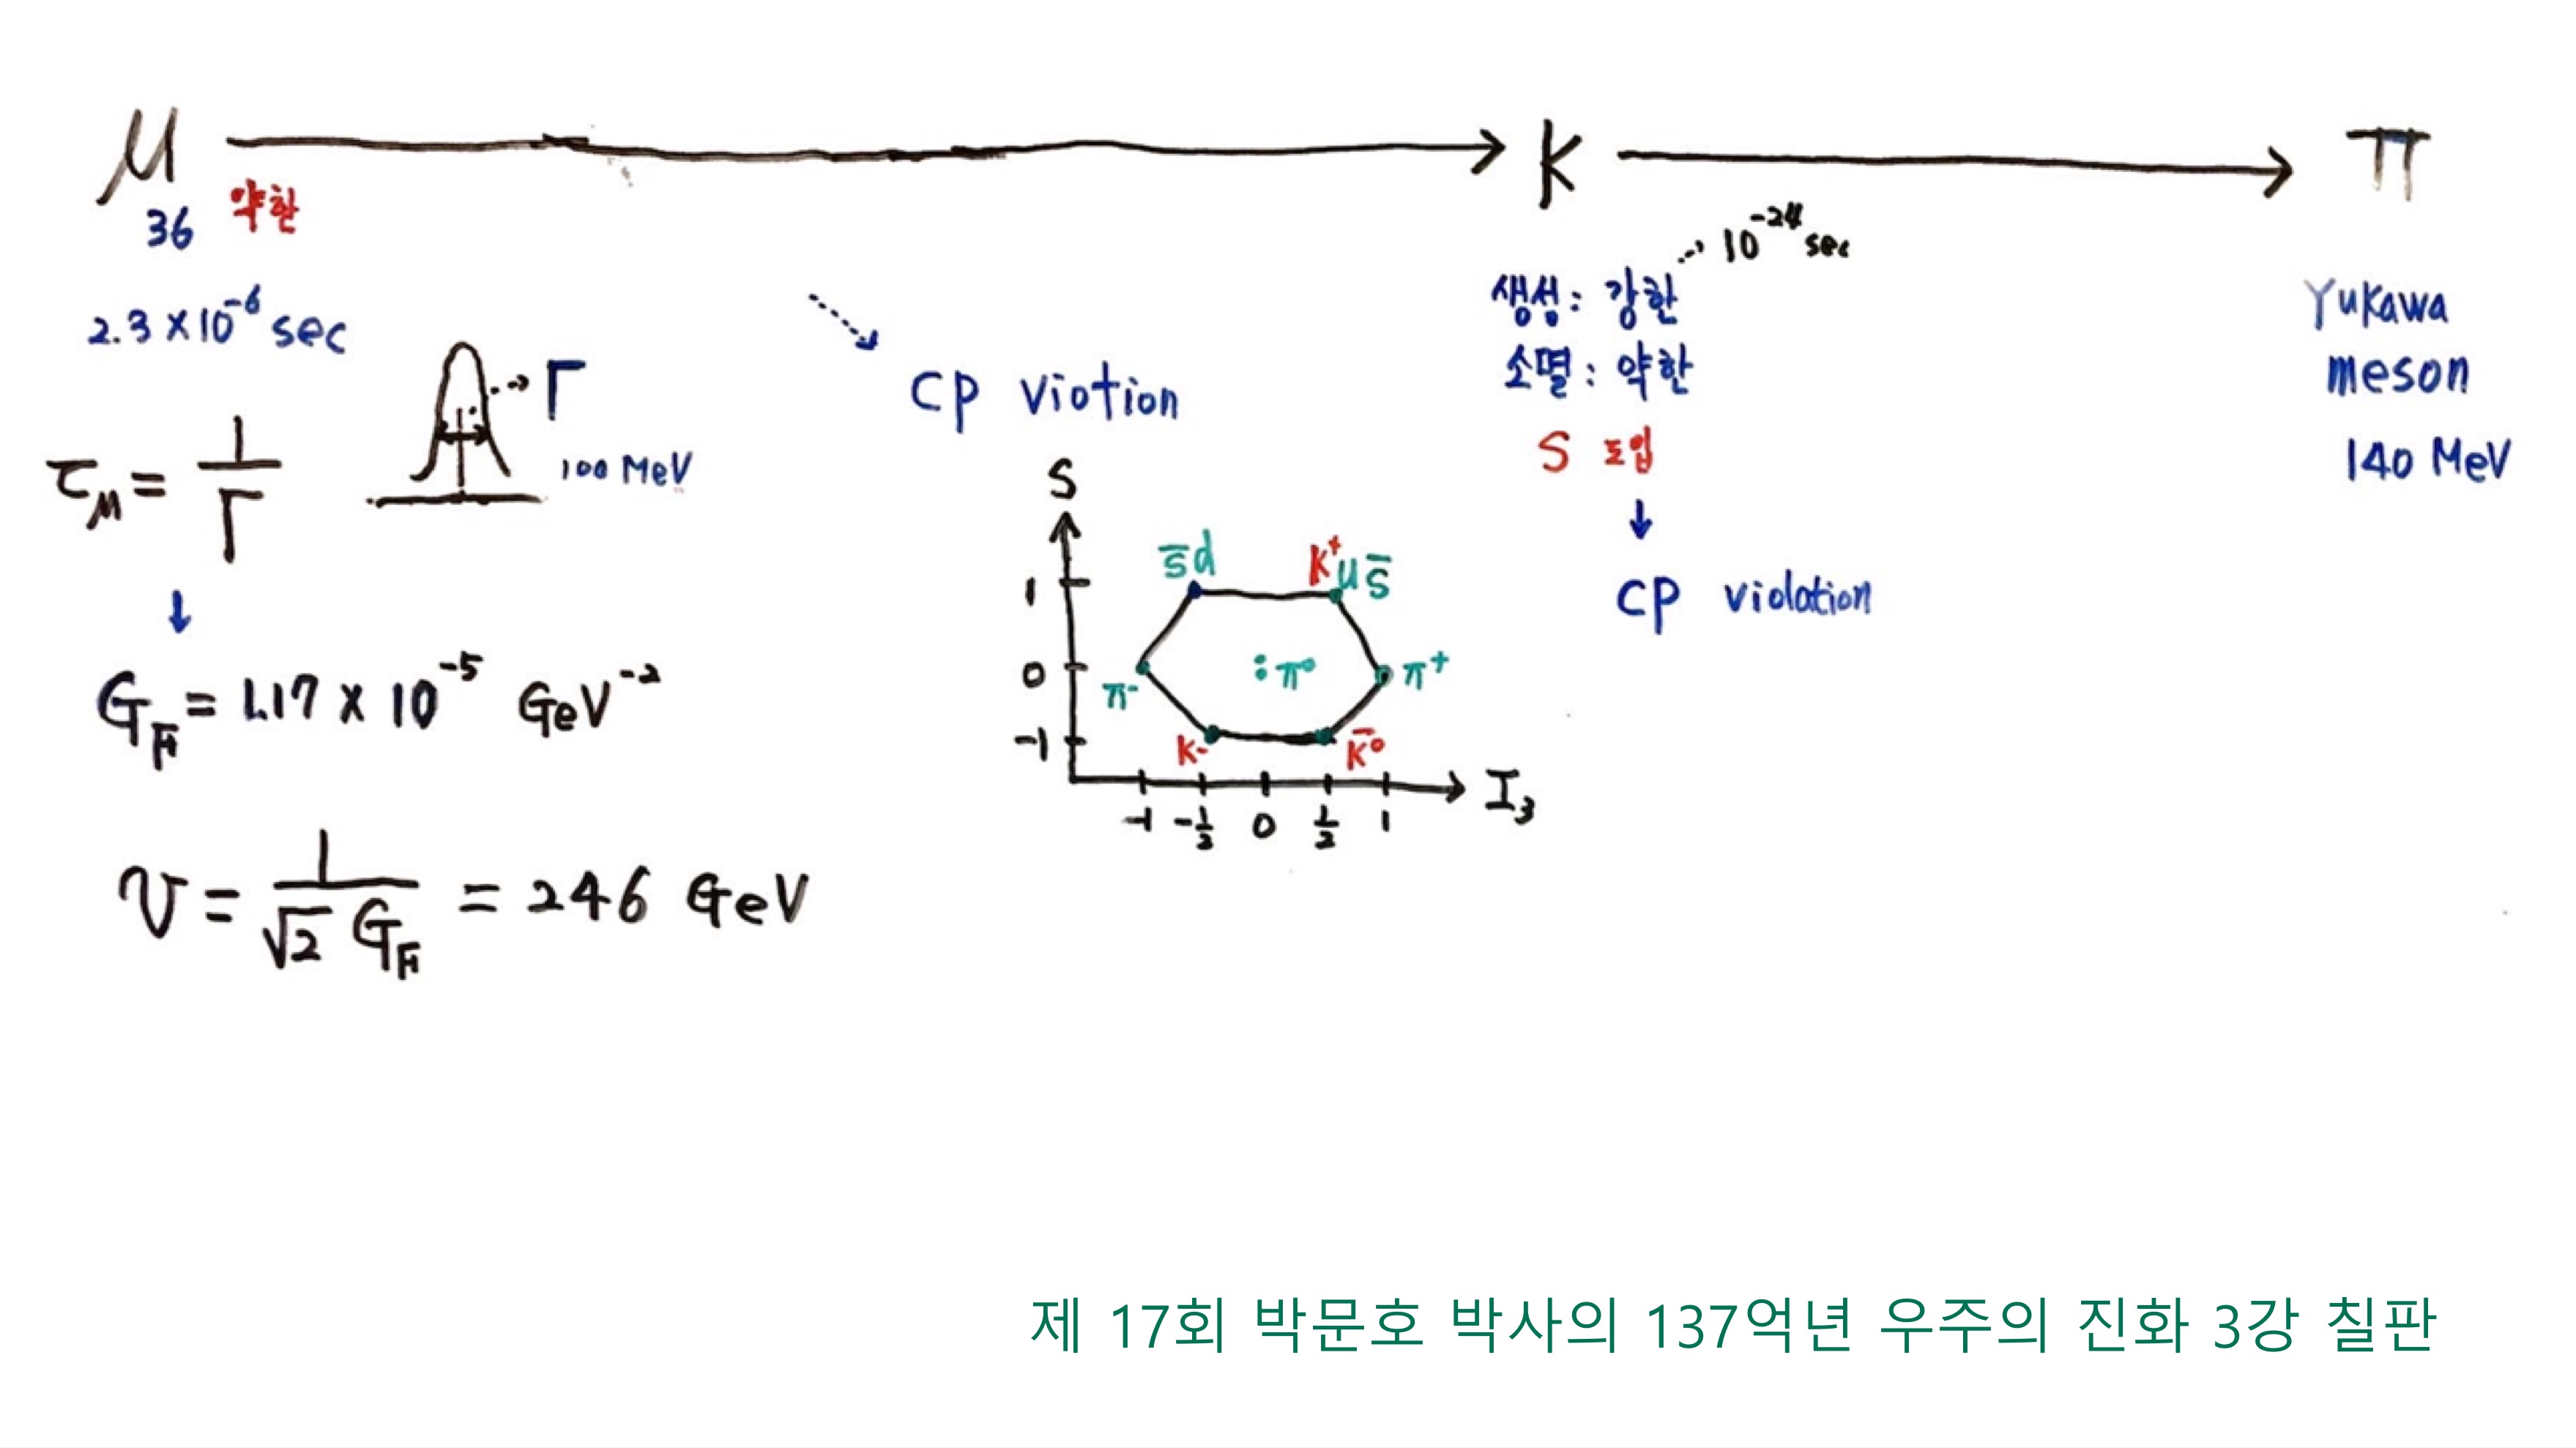 μ → K → π
36 약한
2.3 × 10⁻⁶ sec
τ_μ = 1/Γ
Γ
100 MeV
↓
G_F = 1.17 × 10⁻⁵ GeV⁻²
v = 1/(√2 G_F) = 246 GeV
CP viotion
S
1
0
-1
s̄d
K⁺ us̄
π⁻
π⁰
π⁺
K-
K̄⁰
-1 -1/2 0 1/2 1
I₃
10⁻²⁴ sec
생성: 강한
소멸: 약한
S 도입
↓
CP violation
Yukawa
meson
140 MeV
제 17회 박문호 박사의 137억년 우주의 진화 3강 칠판